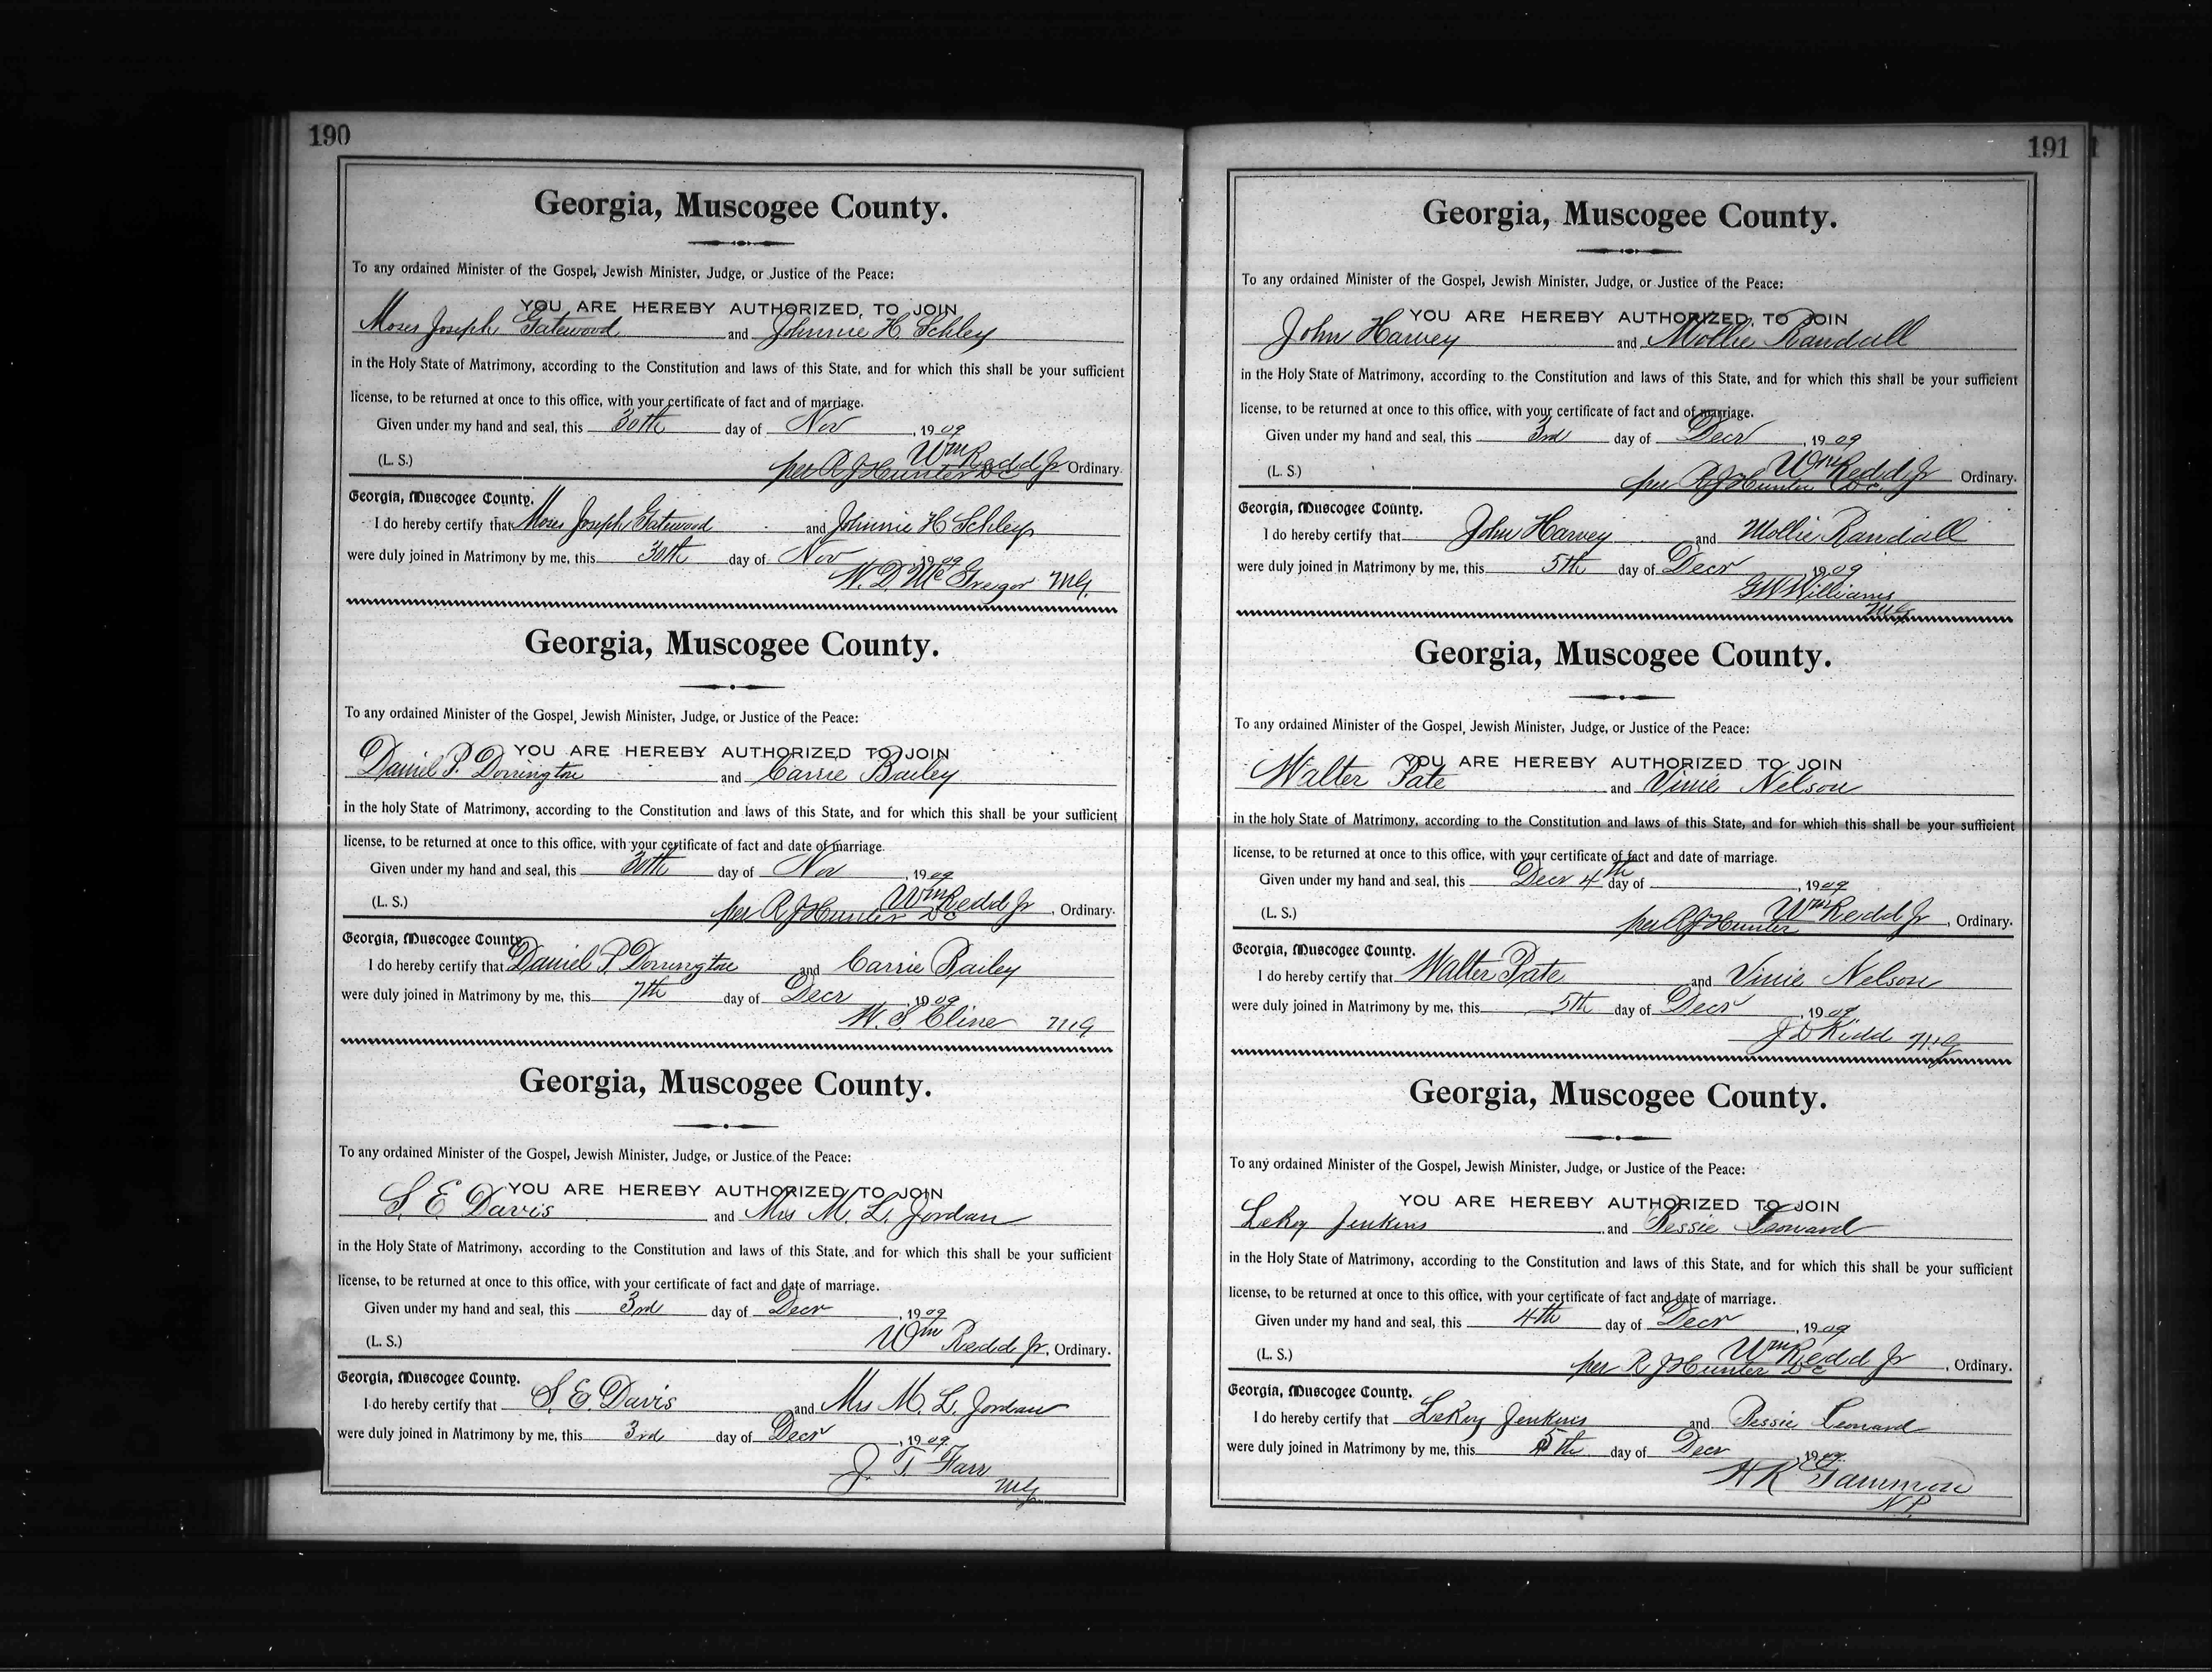 190
Georgia, Muscogee County.
To any ordained Minister of the Gospel, Jewish Minister, Judge, or Justice of the Peace:
YOU ARE HEREBY AUTHORIZED, TO JOIN
Moses Joseph Gatewood and Johnnie H. Schley
in the Holy State of Matrimony, according to the Constitution and laws of this State, and for which this shall be your sufficient
license, to be returned at once to this office, with your certificate of fact and of marriage.
Given under my hand and seal, this 30th day of Nov, 1909
Wm Redd Jr
(L. S.) per R J Hunter DC Ordinary.
Georgia, Muscogee County.
I do hereby certify that Moses Joseph Gatewood and Johnnie H Schley
were duly joined in Matrimony by me, this 30th day of Nov 1909
W. D. McGregor MG.
Georgia, Muscogee County.
To any ordained Minister of the Gospel, Jewish Minister, Judge, or Justice of the Peace:
YOU ARE HEREBY AUTHORIZED TO JOIN
Daniel P. Dorrington and Carrie Bailey
in the holy State of Matrimony, according to the Constitution and laws of this State, and for which this shall be your sufficient
license, to be returned at once to this office, with your certificate of fact and date of marriage.
Given under my hand and seal, this 30th day of Nov, 1909
Wm Redd Jr
(L. S.) per R J Hunter DC, Ordinary.
Georgia, Muscogee County.
I do hereby certify that Daniel P Dorrington and Carrie Bailey
were duly joined in Matrimony by me, this 7th day of Decr, 1909
W. S. Cline MG
Georgia, Muscogee County.
To any ordained Minister of the Gospel, Jewish Minister, Judge, or Justice of the Peace:
YOU ARE HEREBY AUTHORIZED TO JOIN
S. E Davis and Mrs M. L. Jordan
in the Holy State of Matrimony, according to the Constitution and laws of this State, and for which this shall be your sufficient
license, to be returned at once to this office, with your certificate of fact and date of marriage.
Given under my hand and seal, this 3rd day of Decr, 1909
(L. S.) Wm Redd Jr, Ordinary.
Georgia, Muscogee County.
I do hereby certify that S. E. Davis and Mrs M. L. Jordan
were duly joined in Matrimony by me, this 3rd day of Decr, 1909.
J. T. Farr
MG
191
Georgia, Muscogee County.
To any ordained Minister of the Gospel, Jewish Minister, Judge, or Justice of the Peace:
YOU ARE HEREBY AUTHORIZED TO JOIN
John Harvey and Mollie Randall
in the Holy State of Matrimony, according to the Constitution and laws of this State, and for which this shall be your sufficient
license, to be returned at once to this office, with your certificate of fact and of marriage.
Given under my hand and seal, this 3rd day of Decr, 1909
Wm Redd Jr
(L. S.) per R J Hunter DC Ordinary.
Georgia, Muscogee County.
I do hereby certify that John Harvey and Mollie Randall
were duly joined in Matrimony by me, this 5th day of Decr, 1909
G W Williams
MG
Georgia, Muscogee County.
To any ordained Minister of the Gospel, Jewish Minister, Judge, or Justice of the Peace:
YOU ARE HEREBY AUTHORIZED TO JOIN
Walter Pate and Vinie Nelson
in the holy State of Matrimony, according to the Constitution and laws of this State, and for which this shall be your sufficient
license, to be returned at once to this office, with your certificate of fact and date of marriage.
Given under my hand and seal, this Decr 4th day of , 1909
Wm Redd Jr
(L. S.) per R J Hunter, Ordinary.
Georgia, Muscogee County.
I do hereby certify that Walter Pate and Vinie Nelson
were duly joined in Matrimony by me, this 5th day of Decr, 1909
J D Kidd MG
Georgia, Muscogee County.
To any ordained Minister of the Gospel, Jewish Minister, Judge, or Justice of the Peace:
YOU ARE HEREBY AUTHORIZED TO JOIN
LeRoy Jenkins and Bessie Leonard
in the Holy State of Matrimony, according to the Constitution and laws of this State, and for which this shall be your sufficient
license, to be returned at once to this office, with your certificate of fact and date of marriage.
Given under my hand and seal, this 4th day of Decr, 1909
Wm Redd Jr
(L. S.) per R J Hunter DC, Ordinary.
Georgia, Muscogee County.
I do hereby certify that LeRoy Jenkins and Bessie Leonard
were duly joined in Matrimony by me, this 5th day of Decr, 1909.
H R
N. P.